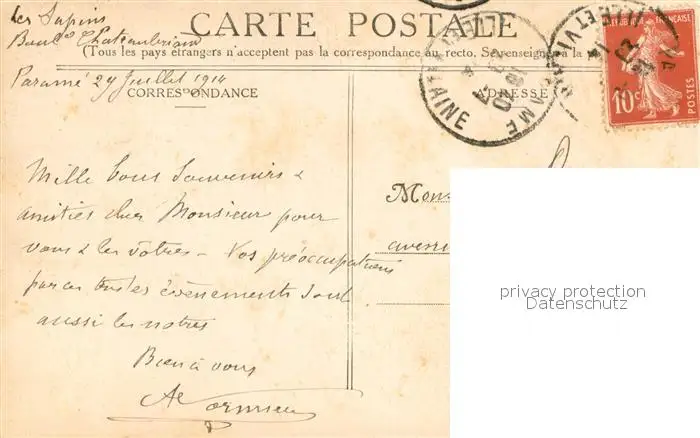 Les Sapins
CARTE POSTALE
Boul^d Chateaubriand
(Tous les pays étrangers n'acceptent pas la correspondance au recto. Se renseigner à la
Paramé 29 Juillet 1914
CORRESPONDANCE
ADRESSE
RÉPUBLIQUE FRANÇAISE
10c
POSTES
PARAMÉ
ILLE ET VILAINE
Mille bons souvenirs &
amitiés cher Monsieur pour
vous & les vôtres - Vos préoccupations
par ces tristes évènements sont
aussi les notres
Bien à vous
Mons
avenu
privacy protection
Datenschutz